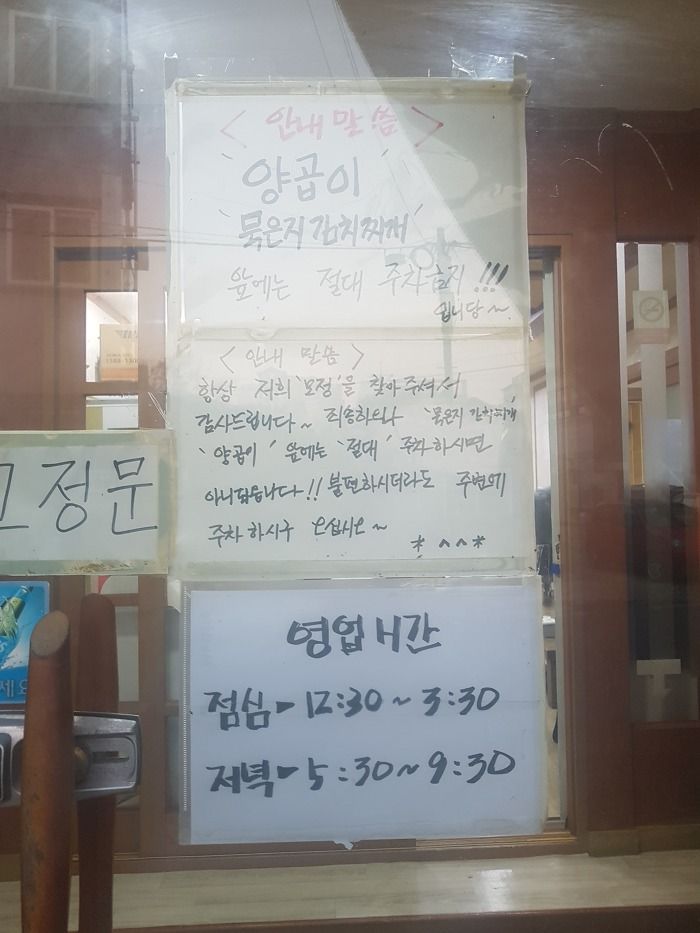 < 안내 말씀 >
'양곱이'
'묵은지 김치찌개'
앞에는 절대 주차금지!!!
입니당~
< 안내 말씀 >
항상 저희 '모정'을 찾아주셔서
감사드립니다~ 죄송하오나 '묵은지 김치찌개'
'양곱이' 앞에는 '절대' 주차하시면
아니되옵니다!! 불편하시더라도 주변에
주차 하시구 오십시오~
* ^^*
고정문
세요
영업시간
점심 - 12:30 ~ 3:30
저녁 - 5:30 ~ 9:30